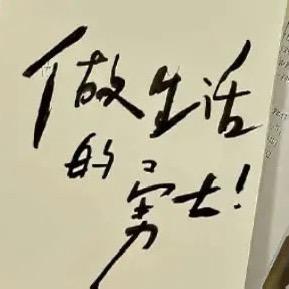 做生活
的勇士!